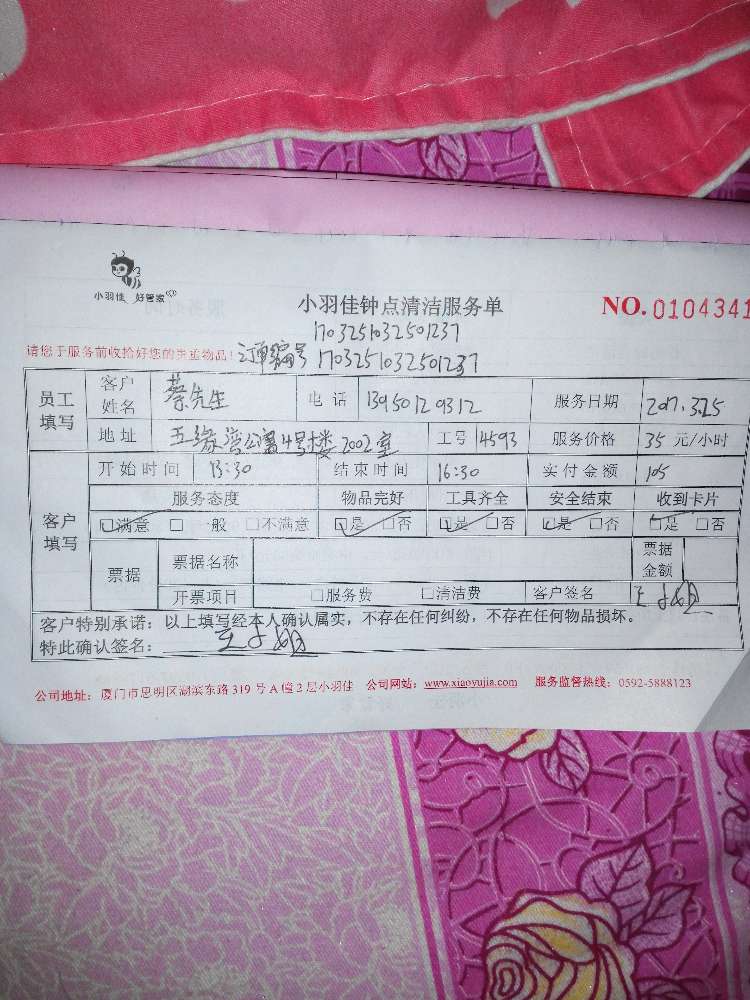 小羽佳 好管家
小羽佳钟点清洁服务单
NO. 0104341
1703251032501237
请您于服务前收拾好您的贵重物品! 订单编号 1703251032501237
员工填写 客户姓名 蔡先生 电话 13950120312 服务日期 2017.3.25
地址 五缘湾公寓4号楼2002室 工号 4593 服务价格 35 元/小时
客户填写 开始时间 13:30 结束时间 16:30 实付金额 105
服务态度 物品完好 工具齐全 安全结束 收到卡片
☑满意 □一般 □不满意 ☑是 □否 ☑是 □否 ☑是 □否 ☑是 □否
票据 票据名称 票据金额
开票项目 □服务费 □清洁费 客户签名
客户特别承诺:以上填写经本人确认属实,不存在任何纠纷,不存在任何物品损坏。
特此确认签名:
公司地址:厦门市思明区湖滨东路 319 号 A 幢 2 层小羽佳 公司网站:www.xiaoyujia.com 服务监督热线:0592-5888123